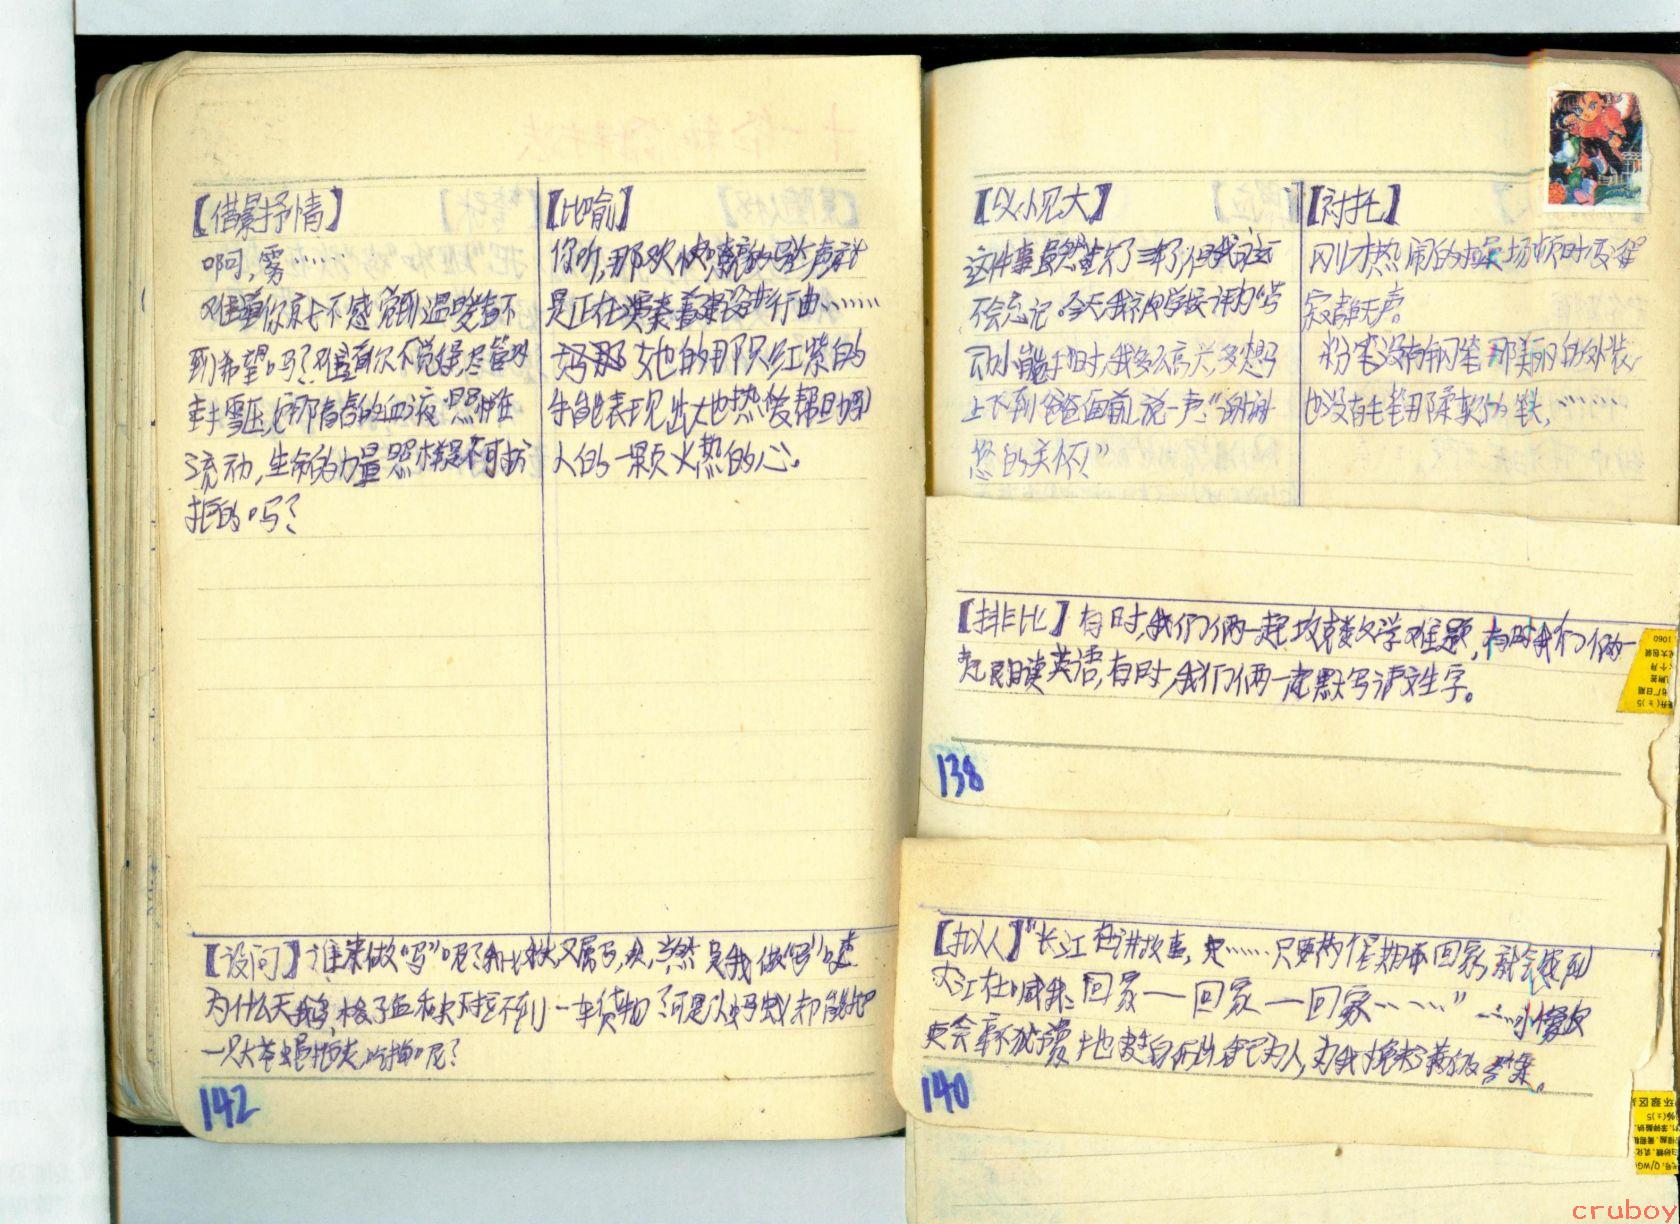 【借景抒情】
啊，雾……
难道你就不感觉到温暖看不
到希望吗？难道你不觉得，尽管冰
封雪压，那青春的血液照样在
流动，生命的力量照样是不可抗
拒的吗？
【比喻】
你听，那欢快嘹亮的号声就
是正在演奏着建设进行曲……
她的那只红紫的
手能表现出她热爱帮助别
人的一颗火热的心。
【设问】谁来做"吗"呢？我比较，又属马，块，当然是我做"吗"喽
为什么天鹅，梭子鱼和虾拉不动一车货物？可是小蚂蚁却能把
一只大苍蝇拖走吃掉呢？
142
【以小见大】
这件事虽然过去了三年了，但我永远
不会忘记。今天我被学校评为"劳
动小能手"时，我多么高兴，多想马
上飞到爸爸面前，说一声："谢谢
您的关怀！"
【衬托】
刚才热闹的操场顿时变得
寂静无声。
粉笔没有钢笔那美丽的外装，
也没有毛笔那柔软的笔，……
【排比】有时，我们俩一起攻克数学难题，有时我们俩一
起朗读英语，有时，我们俩一起默写语文生字。
138
【拟人】"长江在讲故事，……只要两个星期不回家，就会听到
长江在喊我：回家——回家——回家……"
140
cruboy